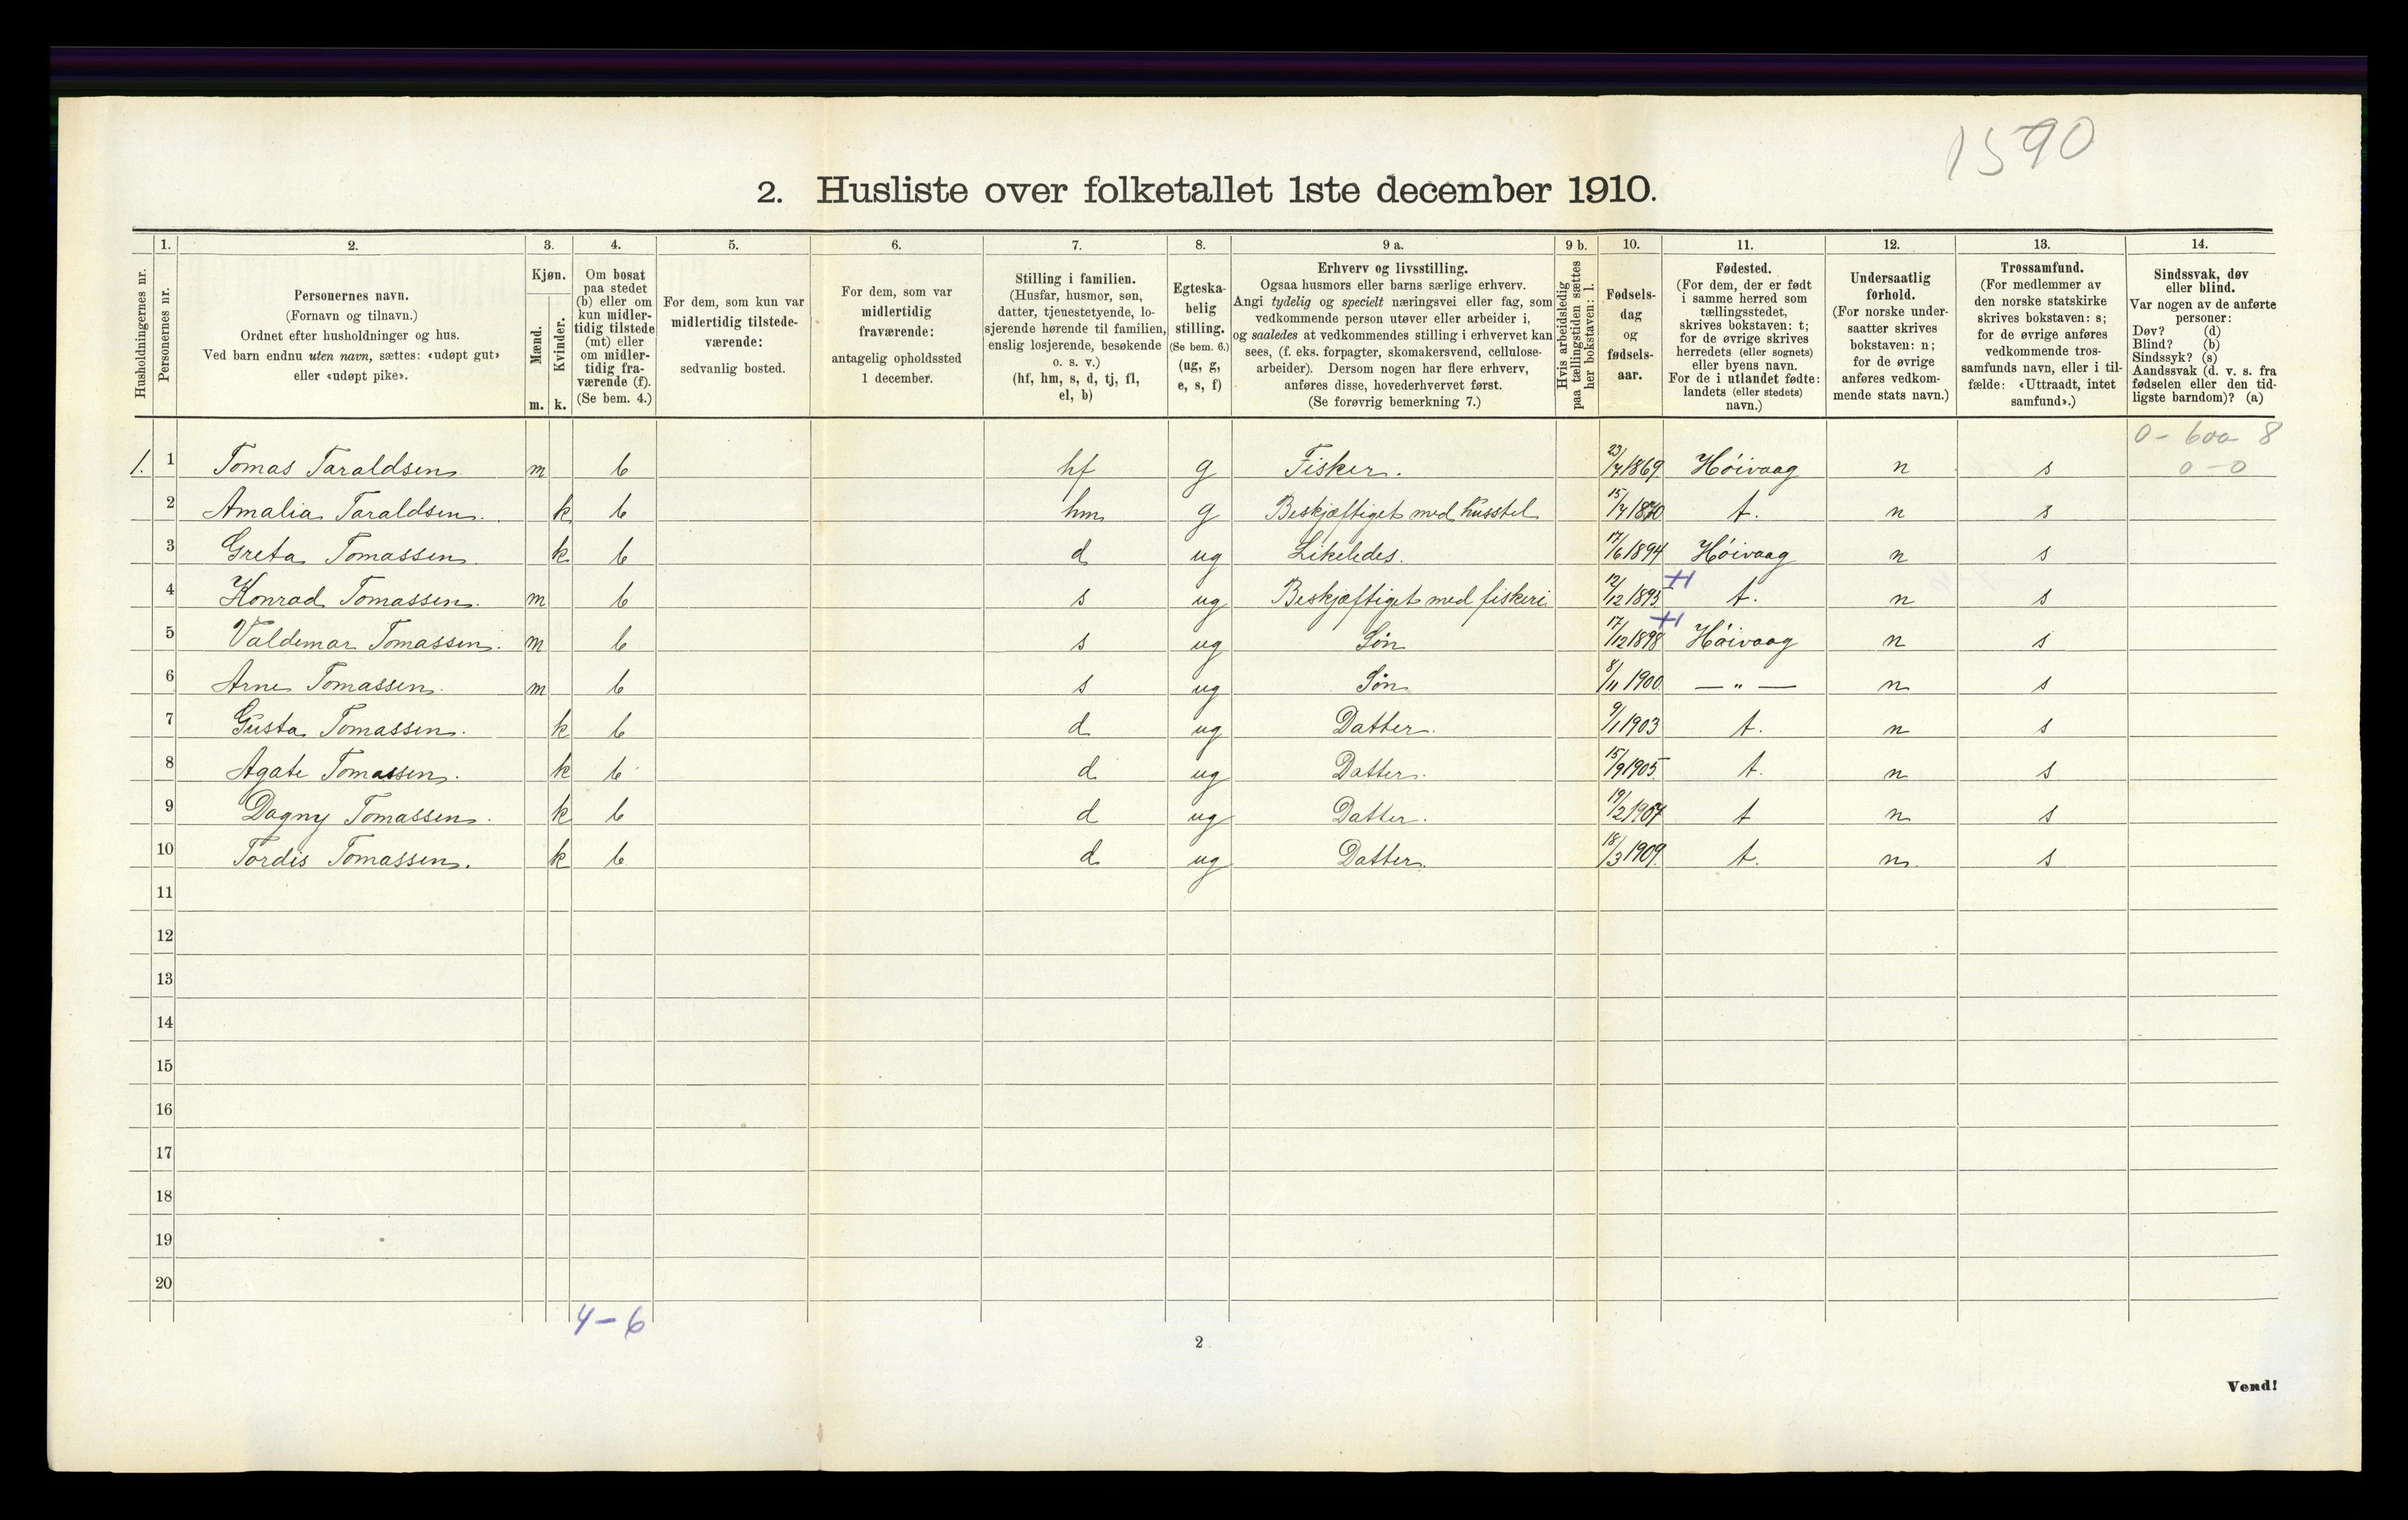 1590
2. Husliste over folketallet 1ste december 1910.
Husholdningernes nr.
1. Personernes nr.
2. Personernes navn. (Fornavn og tilnavn.) Ordnet efter husholdninger og hus. Ved barn endnu uten navn, sættes: «udøpt gut» eller «udøpt pike».
3. Kjøn. Mænd. m. Kvinder. k.
4. Om bosat paa stedet (b) eller om kun midlertidig tilstede (mt) eller om midlertidig fraværende (f). (Se bem. 4.)
5. For dem, som kun var midlertidig tilstedeværende: sedvanlig bosted.
6. For dem, som var midlertidig fraværende: antagelig opholdssted 1 december.
7. Stilling i familien. (Husfar, husmor, søn, datter, tjenestetyende, losjerende hørende til familien, enslig losjerende, besøkende o. s. v.) (hf, hm, s, d, tj, fl, el, b)
8. Egteskabelig stilling. (Se bem. 6.) (ug, g, e, s, f)
9 a. Erhverv og livsstilling. Ogsaa husmors eller barns særlige erhverv. Angi tydelig og specielt næringsvei eller fag, som vedkommende person utøver eller arbeider i, og saaledes at vedkommendes stilling i erhvervet kan sees, (f. eks. forpagter, skomakersvend, cellulosearbeider). Dersom nogen har flere erhverv, anføres disse, hovederhvervet først. (Se forøvrig bemerkning 7.)
9 b. Hvis arbeidsledig paa tællingstiden sættes her bokstaven: l.
10. Fødselsdag og fødselsaar.
11. Fødested. (For dem, der er født i samme herred som tællingsstedet, skrives bokstaven: t; for de øvrige skrives herredets (eller sognets) eller byens navn. For de i utlandet fødte: landets (eller stedets) navn.)
12. Undersaatlig forhold. (For norske undersaatter skrives bokstaven: n; for de øvrige anføres vedkommende stats navn.)
13. Trossamfund. (For medlemmer av den norske statskirke skrives bokstaven: s; for de øvrige anføres vedkommende trossamfunds navn, eller i tilfælde: «Uttraadt, intet samfund».)
14. Sindssvak, døv eller blind. Var nogen av de anførte personer: Døv? (d) Blind? (b) Sindssyk? (s) Aandssvak (d. v. s. fra fødselen eller den tidligste barndom)? (a)
0 - 600 8
0 - 0
1. 1 Tomas Taraldsen m b hf g Fisker. 23/7 1869 Høivaag n s
2 Amalia Taraldsen. k b hm g Beskjæftiget med husstel 15/7 1870 t. n s
3 Greta Tomassen. k b d ug Likeledes. 17/6 1894 Høivaag n s
4 Konrad Tomassen. m b s ug Beskjæftiget med fiskeri 12/12 1895 t. n s
5 Valdemar Tomassen. m b s ug Søn 17/12 1898 Høivaag n s
6 Arne Tomassen. m b s ug Søn 8/11 1900 — " — n s
7 Gusta Tomassen. k b d ug Datter. 9/1 1903 t. n s
8 Agate Tomassen. k b d ug Datter. 15/9 1905 t. n s
9 Dagny Tomassen. k b d ug Datter. 19/2 1907 t n s
10 Tordis Tomassen. k b d ug Datter. 18/3 1909. t. n. s
11
12
13
14
15
16
17
18
19
20
4 - 6
2
Vend!